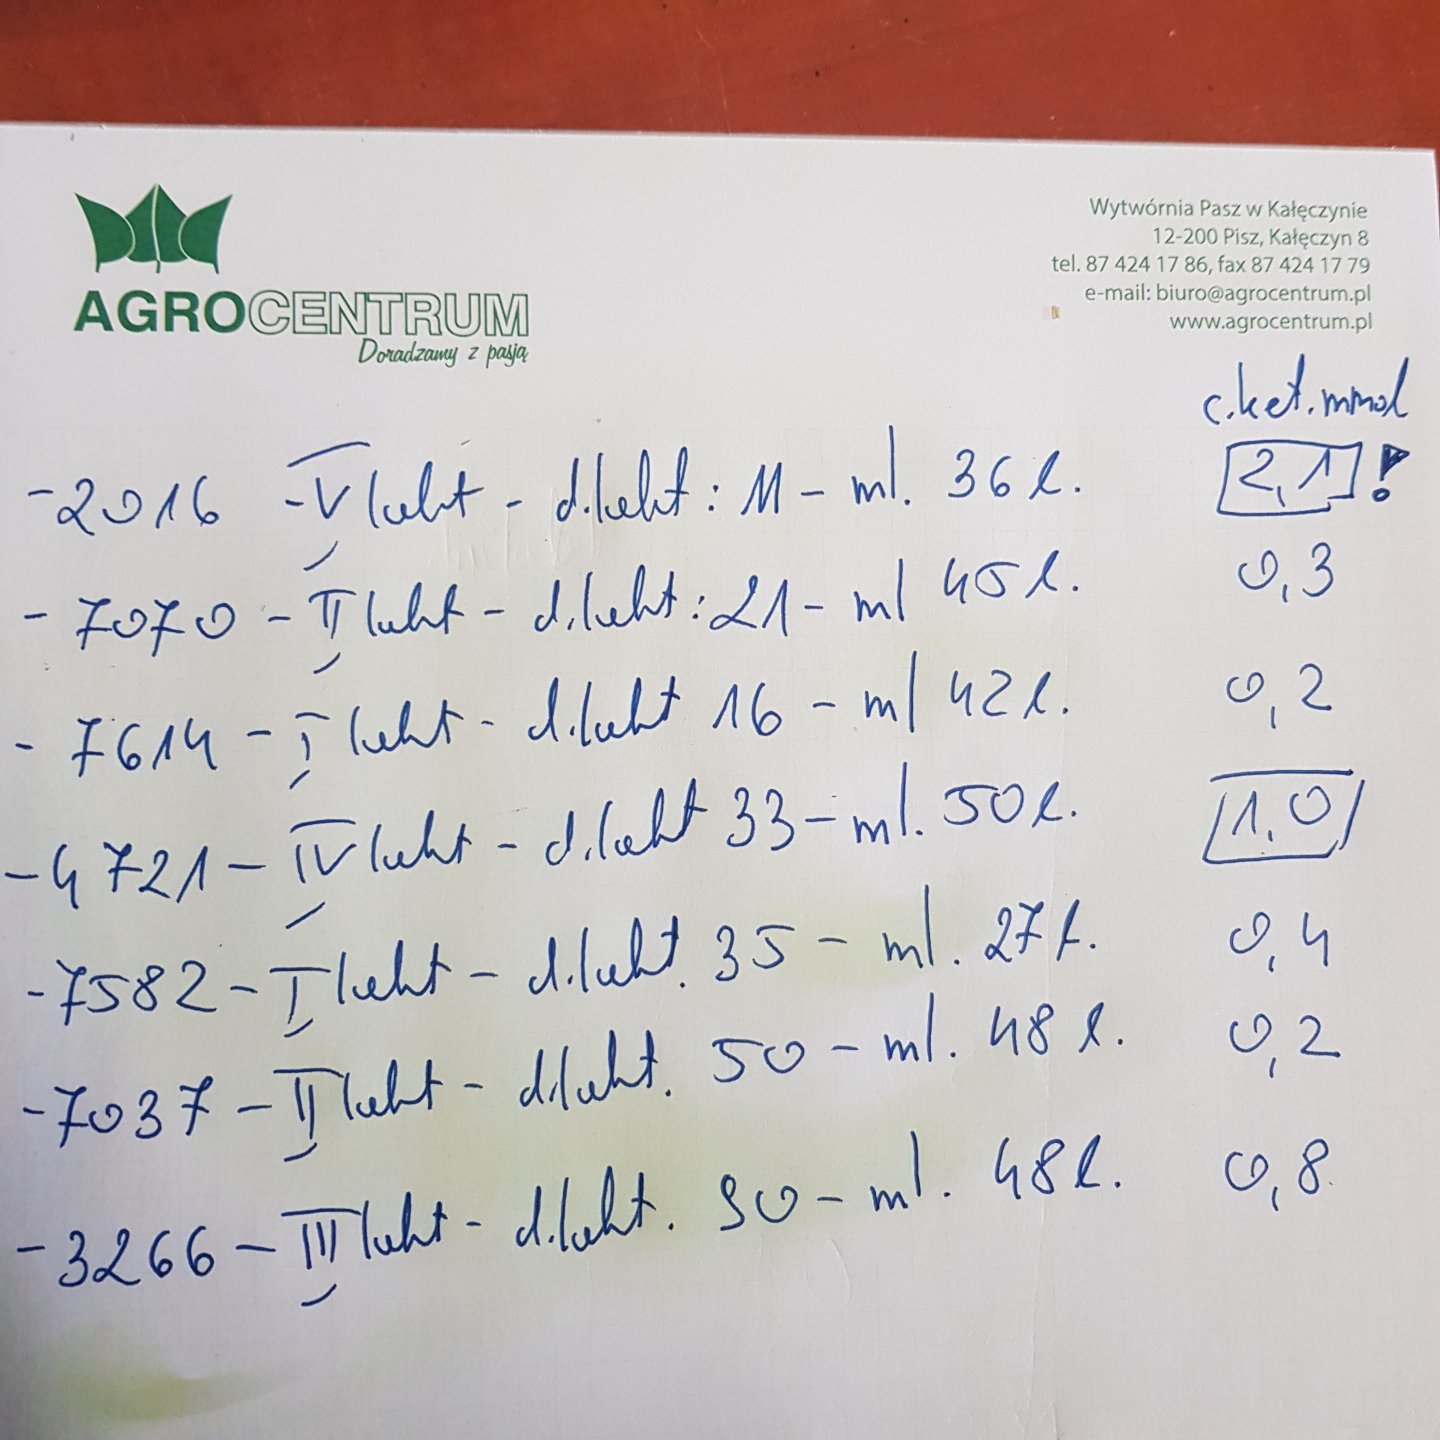 AGROCENTRUM
Doradzamy z pasją
Wytwórnia Pasz w Kałęczynie
12-200 Pisz, Kałęczyn 8
tel. 87 424 17 86, fax 87 424 17 79
e-mail: biuro@agrocentrum.pl
www.agrocentrum.pl
c.ket.mmol
-2016 - V lakt - d.lakt: 11 - ml. 36 l. 2,1 !
- 7070 - II lakt - d.lakt: 21 - ml 45 l. 0,3
- 7614 - I lakt - d.lakt 16 - ml 42 l. 0,2
- 4721 - IV lakt - d.lakt 33 - ml. 50 l. 1,0
- 7582 - I lakt - d.lakt. 35 - ml. 27 l. 0,4
- 7037 - II lakt - d.lakt. 50 - ml. 48 l. 0,2
- 3266 - III lakt - d.lakt. 90 - ml. 48 l. 0,8